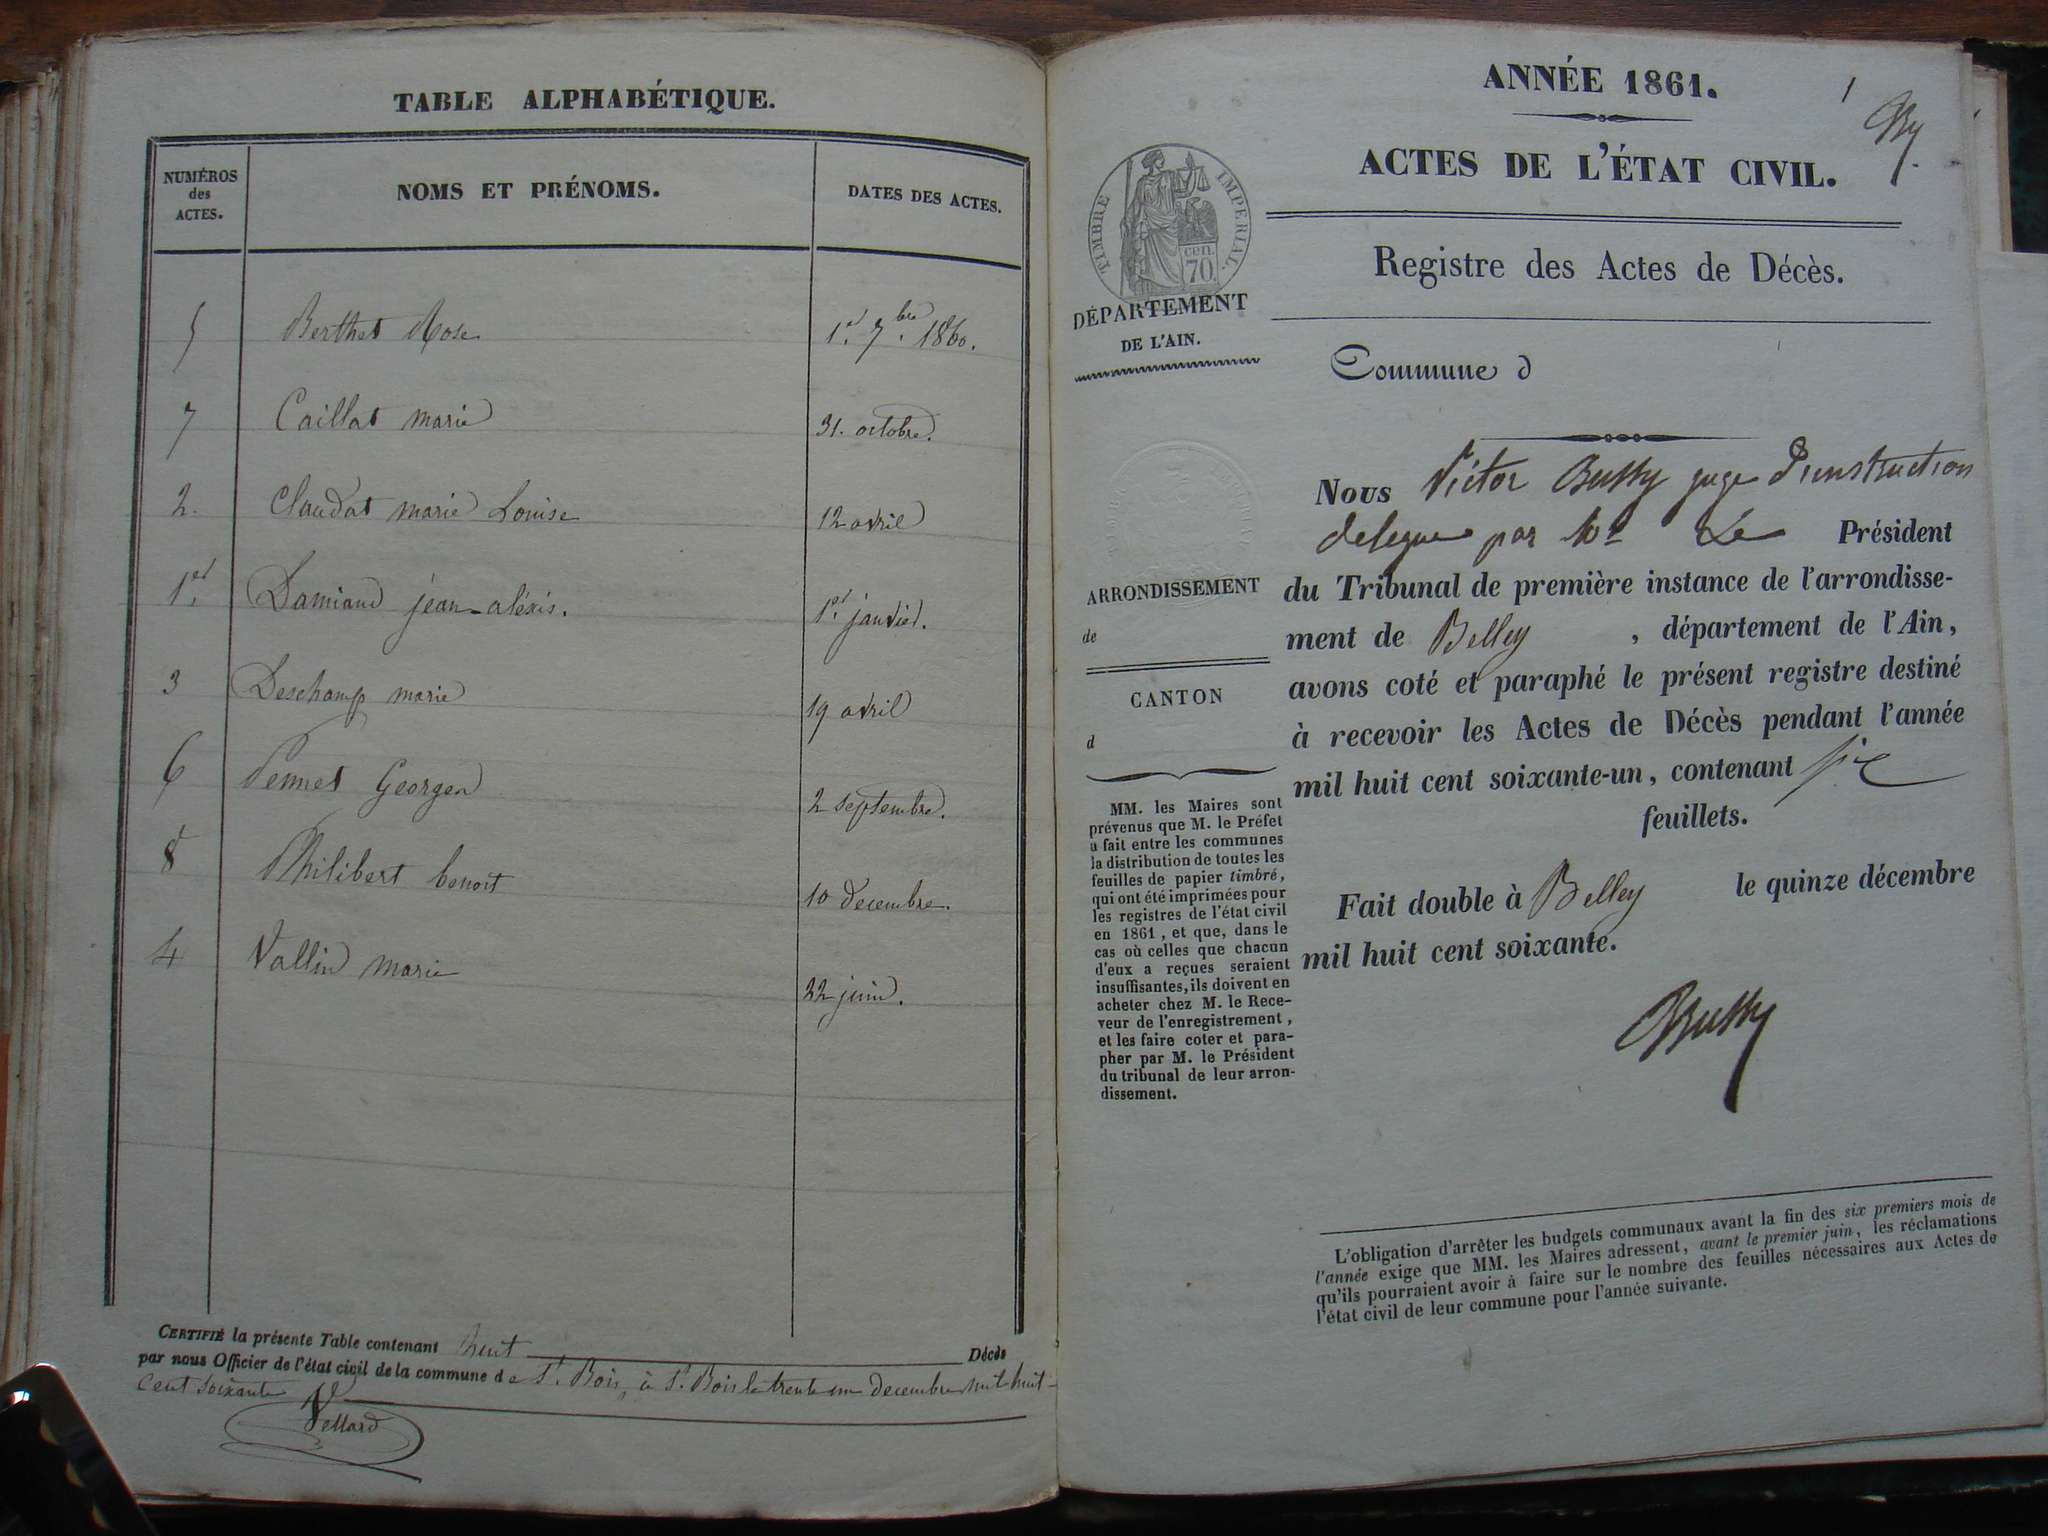 TABLE ALPHABÉTIQUE.
NUMÉROS des ACTES. NOMS ET PRÉNOMS. DATES DES ACTES.
5 Berthet Rose 1er 7bre 1860.
7 Caillat marie 31. octobre.
2. Claudat marie Louise 12 avril
1er Damiand jean-aléxis. 1er janvier.
3 Deschamp marie 19 avril
6 Pennet Georges 2 septembre.
8 Philibert benoit 10 decembre.
4 Vallin marie 22 juin.
CERTIFIÉ la présente Table contenant huit Décès
par nous Officier de l'état civil de la commune de St. Bois, à St. Bois le trente un decembre mil huit-
cent soixante
Pellard
ANNÉE 1861.
1
By
ACTES DE L'ÉTAT CIVIL.
TIMBRE IMPÉRIAL.
cen.
70
Registre des Actes de Décès.
DÉPARTEMENT
DE L'AIN.
Commune d
Nous Victor Bussy juge d'instruction
delegue par Mr Le Président
du Tribunal de première instance de l'arrondisse-
ment de Belley, département de l'Ain,
avons coté et paraphé le présent registre destiné
à recevoir les Actes de Décès pendant l'année
mil huit cent soixante-un, contenant six
feuillets.
Fait double à Belley le quinze décembre
mil huit cent soixante.
Bussy
ARRONDISSEMENT
de
CANTON
d
MM. les Maires sont
prévenus que M. le Préfet
a fait entre les communes
la distribution de toutes les
feuilles de papier timbré,
qui ont été imprimées pour
les registres de l'état civil
en 1861, et que, dans le
cas où celles que chacun
d'eux a reçues seraient
insuffisantes, ils doivent en
acheter chez M. le Rece-
veur de l'enregistrement,
et les faire coter et para-
pher par M. le Président
du tribunal de leur arron-
dissement.
L'obligation d'arrêter les budgets communaux avant la fin des six premiers mois de
l'année exige que MM. les Maires adressent, avant le premier juin, les réclamations
qu'ils pourraient avoir à faire sur le nombre des feuilles nécessaires aux Actes de
l'état civil de leur commune pour l'année suivante.